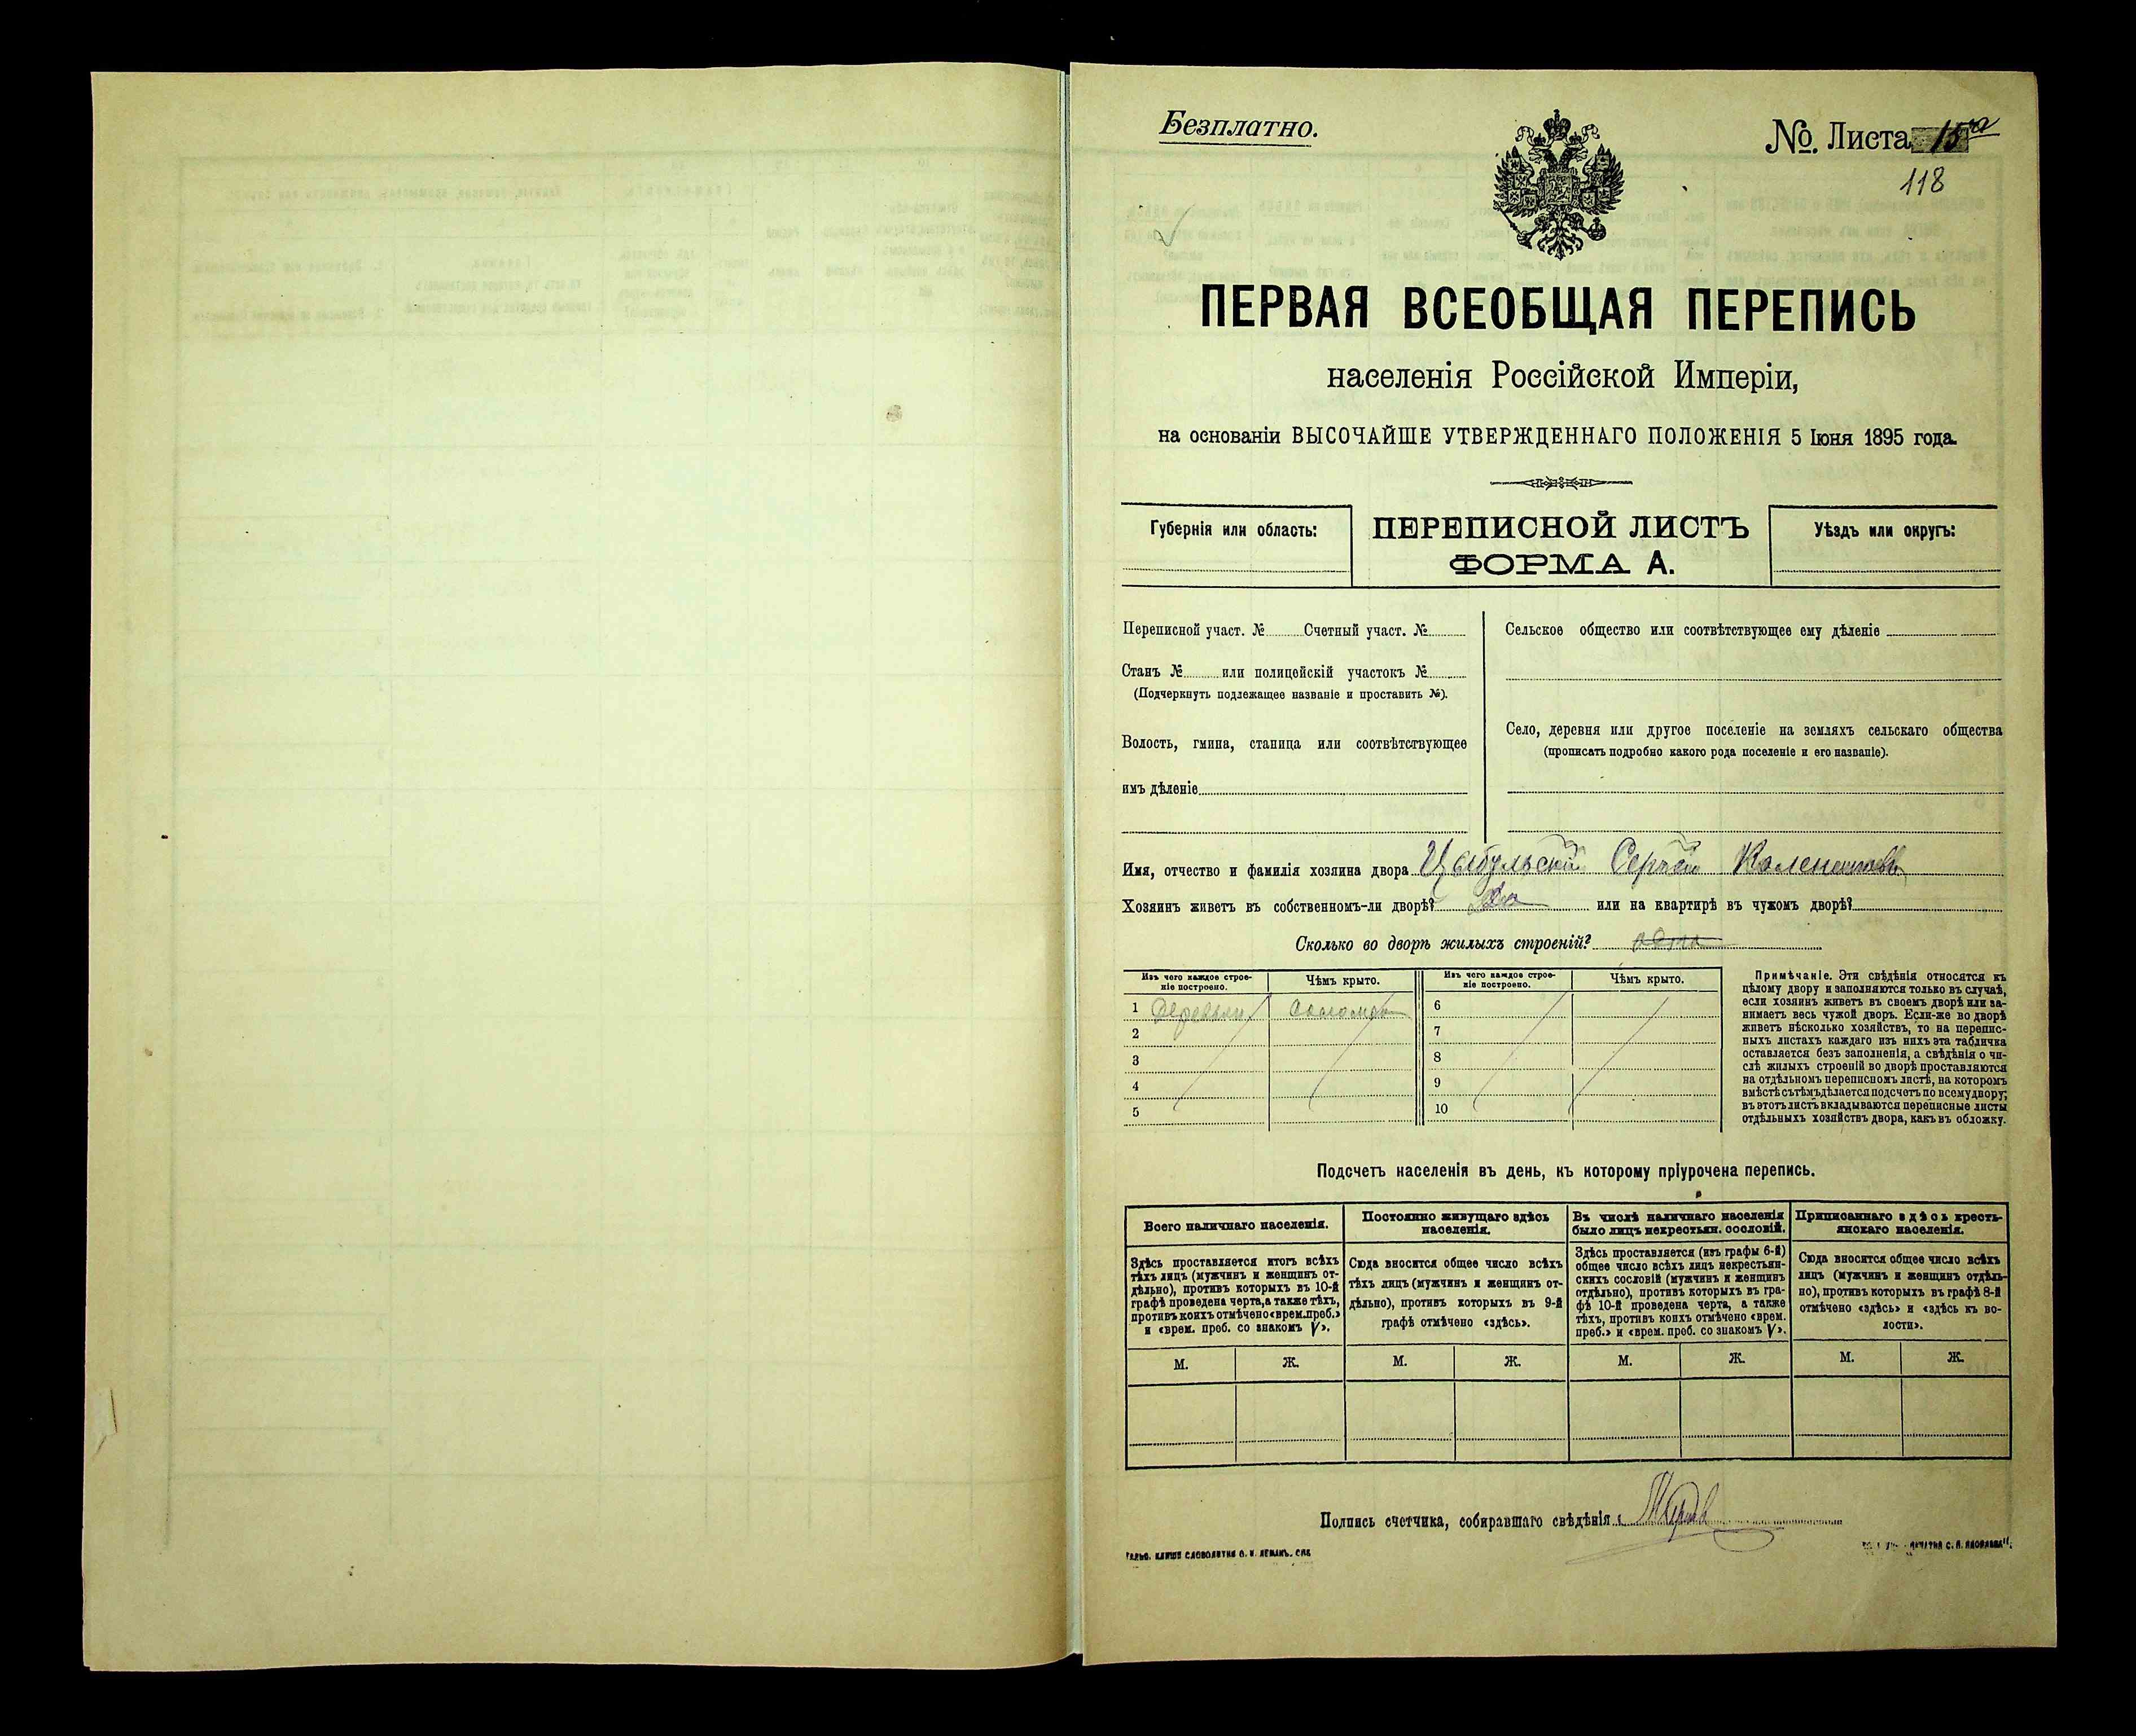 Безплатно.
№ Листа 15а
118
ПЕРВАЯ ВСЕОБЩАЯ ПЕРЕПИСЬ
населенія Россійской Имперіи,
на основаніи ВЫСОЧАЙШЕ УТВЕРЖДЕННАГО ПОЛОЖЕНІЯ 5 Іюня 1895 года.
Губернія или область:
ПЕРЕПИСНОЙ ЛИСТЪ
ФОРМА А.
Уѣздъ или округъ:
Переписной участ. № Счетный участ. №
Станъ № или полицейскій участокъ №
(Подчеркнуть подлежащее названіе и проставить №).
Волость, гмина, станица или соотвѣтствующее
имъ дѣленіе
Сельское общество или соотвѣтствующее ему дѣленіе
Село, деревня или другое поселеніе на земляхъ сельскаго общества
(прописать подробно какого рода поселеніе и его названіе).
Имя, отчество и фамилія хозяина двора Цыбульскій Сергѣй
Хозяинъ живетъ въ собственномъ-ли дворѣ? Да или на квартирѣ въ чужомъ дворѣ?
Сколько во дворѣ жилыхъ строеній?
Изъ чего каждое строе-
ніе построено.
Чѣмъ крыто.
Изъ чего каждое строе-
ніе построено.
Чѣмъ крыто.
1
2
3
4
5
6
7
8
9
10
Примѣчаніе. Эти свѣдѣнія относятся къ
цѣлому двору и заполняются только въ случаѣ,
если хозяинъ живетъ въ своемъ дворѣ или за-
нимаетъ весь чужой дворъ. Если-же во дворѣ
живетъ нѣсколько хозяйствъ, то на перепис-
ныхъ листахъ каждаго изъ нихъ эта табличка
оставляется безъ заполненія, а свѣдѣнія о чи-
слѣ жилыхъ строеній во дворѣ проставляются
на отдѣльномъ переписномъ листѣ, на которомъ
вмѣстѣ съ тѣмъ дѣлается подсчетъ по всему двору;
въ этотъ листъ вкладываются переписные листы
отдѣльныхъ хозяйствъ двора, какъ въ обложку.
Подсчетъ населенія въ день, къ которому пріурочена перепись.
Всего наличнаго населенія.
Здѣсь проставляется итогъ всѣхъ
тѣхъ лицъ (мужчинъ и женщинъ от-
дѣльно), противъ которыхъ въ 10-й
графѣ проведена черта, а также тѣхъ,
противъ коихъ отмѣчено «врем. преб.»
и «врем. преб. со знакомъ V».
Постоянно живущаго здѣсь
населенія.
Сюда вносится общее число всѣхъ
тѣхъ лицъ (мужчинъ и женщинъ от-
дѣльно), противъ которыхъ въ 9-й
графѣ отмѣчено «здѣсь».
Въ числѣ наличнаго населенія
было лицъ некрестьян. сословій.
Здѣсь проставляется (изъ графы 6-й)
общее число всѣхъ лицъ некрестьян-
скихъ сословій (мужчинъ и женщинъ
отдѣльно), противъ которыхъ въ гра-
фѣ 10-й проведена черта, а также
тѣхъ, противъ коихъ отмѣчено «врем.
преб.» и «врем. преб. со знакомъ V».
Приписаннаго здѣсь кресть-
янскаго населенія.
Сюда вносится общее число всѣхъ
лицъ (мужчинъ и женщинъ отдѣль-
но), противъ которыхъ въ графѣ 8-й
отмѣчено «здѣсь» и «здѣсь къ во-
лости».
М. Ж. М. Ж. М. Ж. М. Ж.
Подпись счетчика, собиравшаго свѣдѣнія: